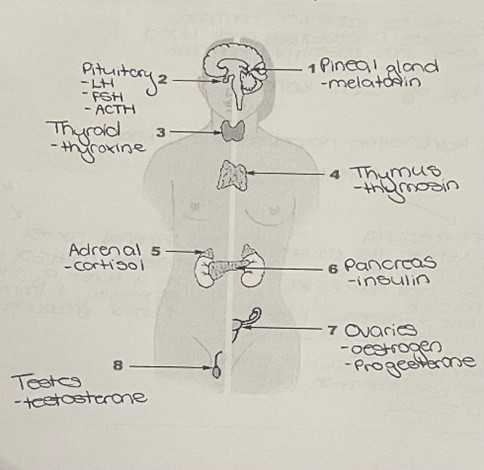 1 Pineal gland
-melatonin
Pituitary 2
-LH
-FSH
-ACTH
Thyroid 3
-thyroxine
4 Thymus
-thymosin
Adrenal 5
-cortisol
6 Pancreas
-insulin
7 Ovaries
-oestrogen
-Progesterone
8
Testes
-testosterone